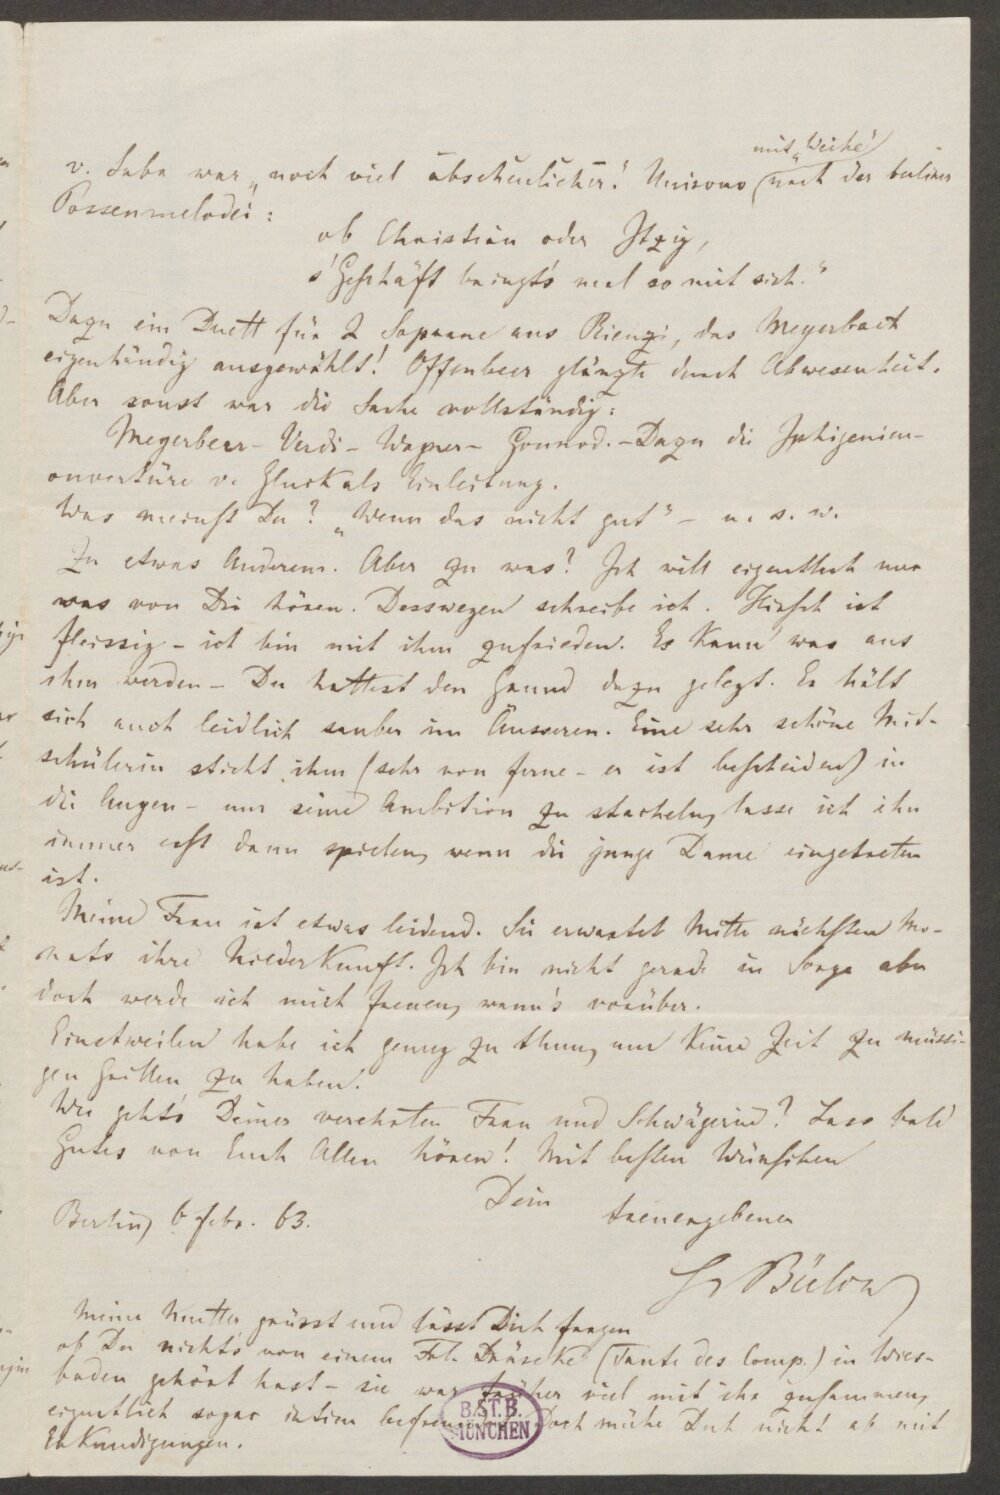 mit „Weihe"
v. Saba war „noch viel abscheulicher." Unisono (nach der berliner
Possenmelodei:
ob Christian oder Itzig,
s'Geschäft bringt's mal so mit sich."
Dazu ein Duett für 2 Soprane aus Rienzi, das Meyerbach
eigenhändig ausgewählt! Offenbeer glänzte durch Abwesenheit.
Aber sonst war die Sache vollständig:
Meyerbeer – Verdi – Wagner – Gounod. – Dazu die Iphigenien-
ouvertüre v. Gluck als Einleitung.
Was meinst Du? „Wenn das nicht gut" – u. s. w.
Zu etwas Anderem. Aber zu was? Ich will eigentlich nur
was von Dir hören. Desswegen schreibe ich. Hirsch ist
fleissig – ich bin mit ihm zufrieden. Es kann was aus
ihm werden – Du hattest den Grund dazu gelegt. Er hält
sich auch leidlich sauber im Äusseren. Eine sehr schöne Mit-
schülerin sticht ihm (sehr von ferne – er ist bescheiden) in
die Augen – um seine Ambition zu stacheln, lasse ich ihn
immer erst dann spielen, wenn die junge Dame eingetreten
ist.
Meine Frau ist etwas leidend. Sie erwartet Mitte nächsten Mo-
nats ihre Niederkunft. Ich bin nicht gerade in Sorge aber
doch werde ich mich freuen, wann's vorüber.
Einstweilen habe ich genug zu thun, um keine Zeit zu müssi-
gen Grillen zu haben.
Wie geht's Deiner verehrten Frau und Schwägerin? Lass bald
Gutes von Euch Allen hören! Mit besten Wünschen
Dein
treuergebener
Berlin, 6 febr. 63.
Hv Bülow
Meine Mutter grüsst und lässt Dich fragen
ob Du nichts von einem Frl. Dräseke (Tante des Comp.) in Wies-
baden gehört hast – sie war früher viel mit ihr zusammen,
eigentlich sogar intim Doch mühe Dich nicht ab mit
Erkundigungen.
B.ST.B.
MÜNCHEN